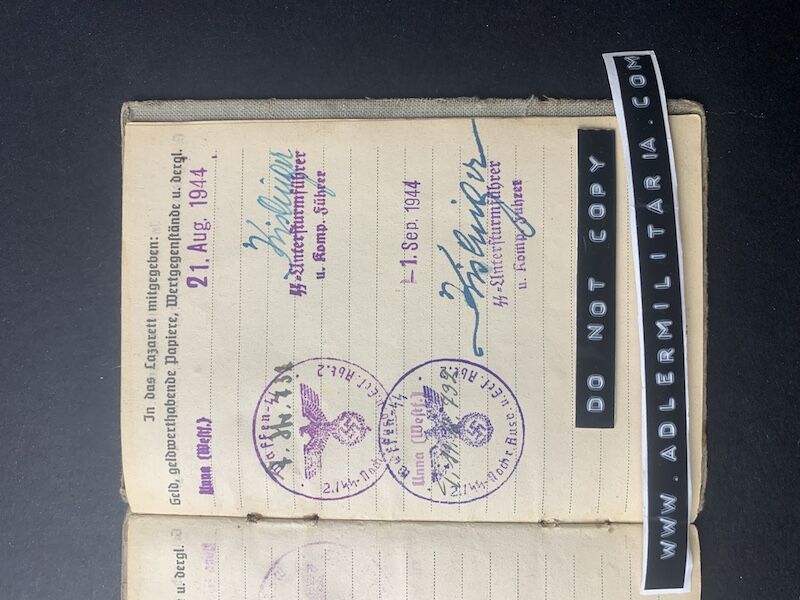 In das Lazarett mitgegeben:
Geld, geldwerthabende Papiere, Wertgegenstände u. dergl.
Unna (Westf.)
21. Aug. 1944
SS=Untersturmführer
u. Komp.-Führer
Waffen-SS
Abt. 2
- 1. Sep. 1944
SS=Untersturmführer
u. Komp.-Führer
Waffen-SS
Unna (Westf.)
SS-Nachr. Ausb. u. Ers. Abt. 2
u. dergl.
DO NOT COPY
WWW.ADLERMILITARIA.COM